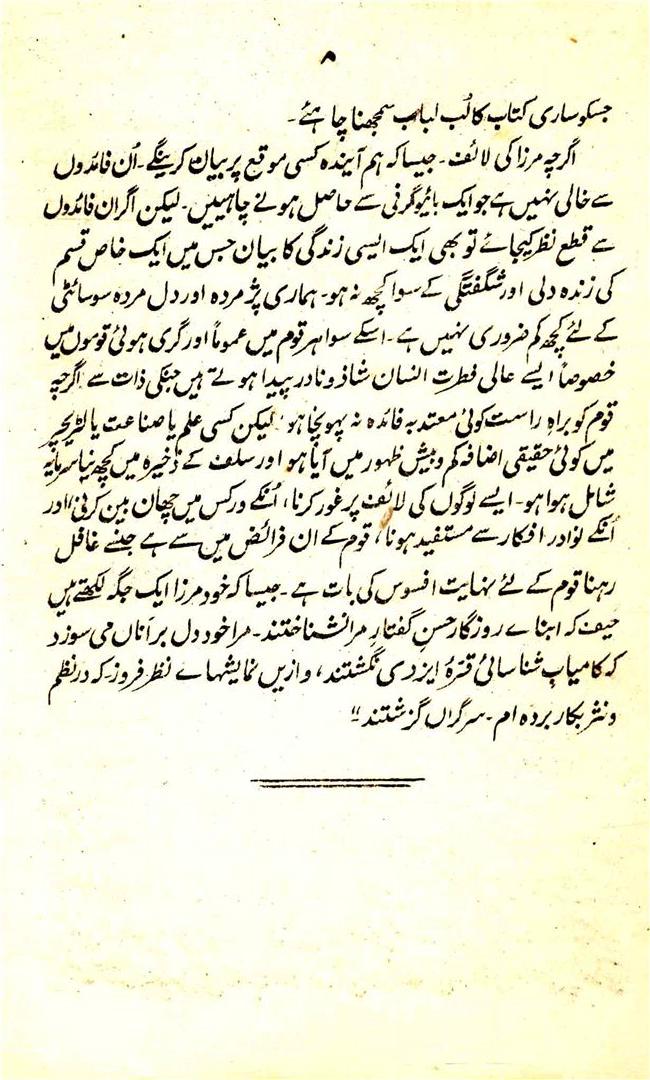 ۸
جسکو ساری کتاب کا لُب لباب سمجھنا چاہئے۔
اگرچہ مرزا کی لائف۔ جیسا کہ ہم آیندہ کسی موقع پر بیان کرینگے۔ اُن فائدوں
سے خالی نہیں ہے جو ایک بائیوگرفی سے حاصل ہونے چاہییں۔ لیکن اگر ان فائدوں
سے قطع نظر کیجائے تو بھی ایک ایسی زندگی کا بیان جس میں ایک خاص قسم
کی زندہ دلی اور شگفتگی کے سوا کچھ نہ ہو۔ ہماری پژمردہ اور دل مردہ سوسائٹی
کے لئے کچھ کم ضروری نہیں ہے۔ اسکے سوا ہر قوم میں عموماً اور گری ہوئی قوموں میں
خصوصاً ایسے عالی فطرت انسان شاذ و نادر پیدا ہوتے ہیں جنکی ذات سے اگرچہ
قوم کو براہِ راست کوئی معتدبہ فائدہ نہ پہونچا ہو لیکن کسی علم یا صناعت یا لٹریچر
میں کوئی حقیقی اضافہ کم و بیش ظہور میں آیا ہو اور سلف کے ذخیرہ میں کچھ نیا سرمایہ
شامل ہوا ہو۔ ایسے لوگوں کی لائف پر غور کرنا، اُنکے ورکس میں چھان بین کرنی، اور
اُنکے نوادر افکار سے مستفید ہونا، قوم کے ان فرائض میں سے ہے جنسے غافل
رہنا قوم کے لئے نہایت افسوس کی بات ہے۔ جیسا کہ خود مرزا ایک جگہ لکھتے ہیں
حیف کہ ابناے روزگار حسنِ گفتارِ مرا نشناختند۔ مرا خود دل بر آناں می سوزد
کہ کامیابِ شناسائی فرّہُ ایزدی نگشتند، وازیں نمایشہاے نظر فروز۔ کہ در نظم
و نثر بکار بردہ ام۔ سرگراں گزشتند"